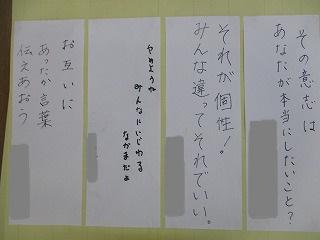 その意志は
あなたが本当にしたいこと?
それが個性!
みんな違ってそれでいい。
やめようね
みんなにいじわる
なかまだよ
お互いに
あったか言葉
伝えあおう